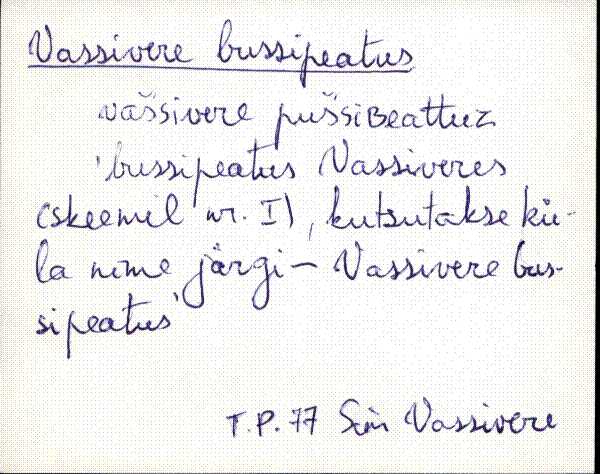 Vassivere bussipeatus
vaš̀sivere puš̀siʙeattuz
'bussipeatus Vassiveres
(skeemil nr. I), kutsutakse kü-
la nime järgi – Vassivere bus-
sipeatus'
T.P. 77 Sim Vassivere